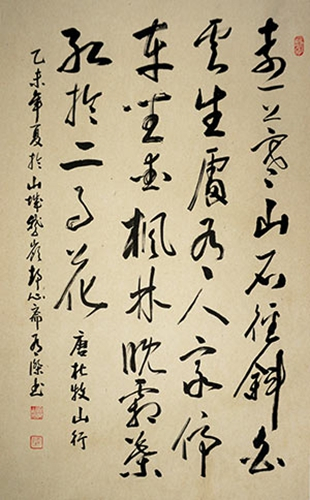 遠上寒山石徑斜白
云生處有人家停
車坐愛楓林晚霜葉
紅於二月花
唐杜牧山行
乙未年夏於山城鵝嶺靜心齋书